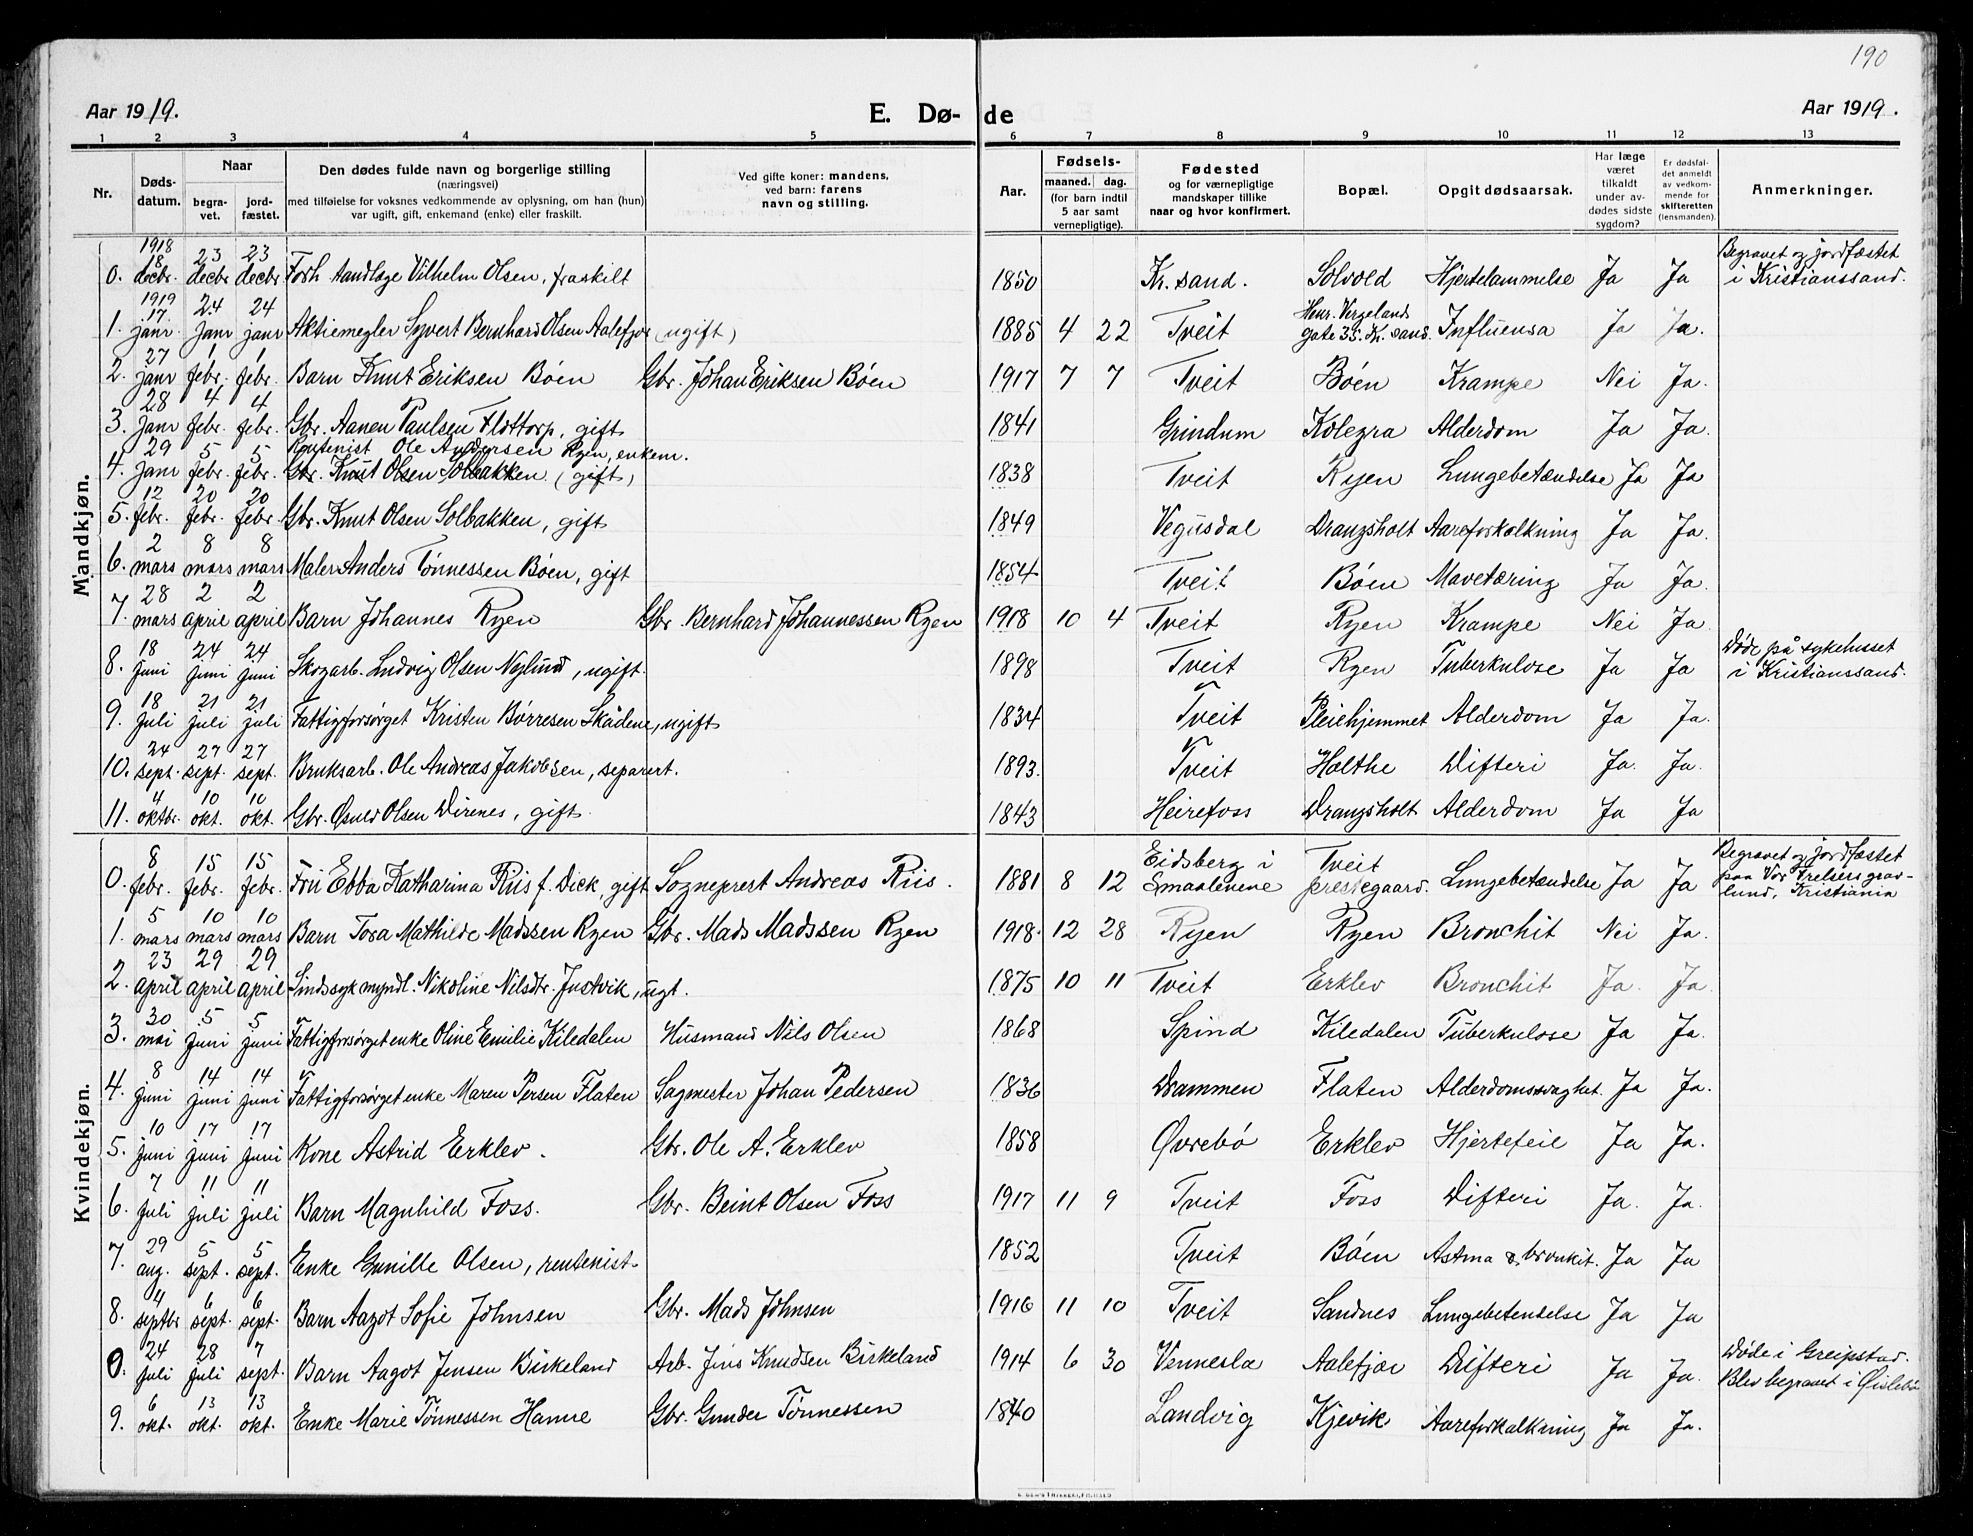 190
Aar 1919. E. Dø- de Aar 1919.
1 2 3 4 5 6 7 8 9 10 11 12 13
Nr. Døds-datum. Naar begra-vet. jord-fæstet. Den dødes fulde navn og borgerlige stilling (næringsvei) med tilføielse for voksnes vedkommende av oplysning, om han (hun) var ugift, gift, enkemand (enke) eller fraskilt. Ved gifte koner: mandens, ved barn: farens navn og stilling. Aar. Fødsels- maaned. dag. (for barn indtil 5 aar samt vernepligtige). Fødested og for værnepligtige mandskaper tillike naar og hvor konfirmert. Bopæl. Opgit dødsaarsak. Har læge været tilkaldt under av-dødes sidste sygdom? Er dødsfal-det anmeldt av vedkom-mende for skifteretten (lensmanden). Anmerkninger.
Mandkjøn.
0. 1918 18 decbr. 23 decbr 23 decbr Forh handlage Vilhelm Olsen, fraskilt 1850 Kr. sand. Solvold Hjertelammelse Ja Ja Begravet og jordfæstet i Kristianssand.
1. 1919 17. janr. 24 janr 24 janr Aktiemegler Syvert Bernhard Olsen Aalefjær (ugift) 1885 4 22 Tveit Henr. Vergelands gate 35. Kr. sand. Influensa Ja Ja.
2. 27 janr 1 febr. 1 febr. Barn Knut Eriksen Bøen Gbr. Johan Eriksen Bøen 1917 7 7 Tveit Bøen Krampe Nei Ja.
3. 28 janr 4 febr. 4 febr. Gbr. Aanen Paulsen Flottorp, gift 1841 Grindum Kolegra Alderdom Ja Ja.
4. 29 janr 5 febr. 5 febr. Rentenist Ole Andersen Ryen, enkem. Gbr. Knut Olsen Solbakken (gift) 1838 Tveit Ryen Lungebetændelse Ja Ja
5. 12 febr. 20 febr. 20 febr. Gbr. Knut Olsen Solbakken, gift 1849 Vegusdal Drangsholt Aareforkalkning Ja Ja.
6. 2 mars 8 mars 8 mars Maler Anders Tønnessen Bøen, gift 1854 Tveit Bøen Mavetæring Ja Ja.
7. 28 mars 2 april 2 april Barn Johannes Ryen Gbr. Bernhard Johannessen Ryen 1918 10 4 Tveit Ryen Krampe Nei Ja.
8. 18 juni 24 juni 24 juni Skogarb. Ludvig Olsen Nylund, ugift. 1898 Tveit Ryen Tuberkulose Ja Ja Døde på sykehusset i Kristianssand.
9. 18 juli 21 juli 21 juli Fattigforsørget Kristen Børresen Skådene, ugift 1834 Tveit Pleiehjemmet Alderdom Ja Ja.
10. 24 sept. 27 sept. 27 sept. Bruksarb. Ole Andreas Jakobsen, separert. 1893. Tveit Holthe Difteri Ja. Ja.
11. 4 oktbr. 10 okt. 10 okt. Gbr. Osuld Olsen Direnes, gift. 1843 Heirefoss Drangsholt Alderdom Ja Ja
Kvindekjøn.
0. 8 febr. 15 febr. 15 febr. Fru Ebba Katharina Riis f. Dick, gift Sogneprest Andreas Riis. 1881 8 12 Eidsberg i Smaalenene Tveit prestegaard. Lungebetændelse Ja Ja Begravet og jordfæstet paa Vor Frelsers grav-lund, Kristiania
1. 5 mars 10 mars 10 mars Barn Tora Mathilde Madssen Ryen Gbr. Mads Madssen Ryen 1918. 12 28 Ryen Ryen Bronchit Nei Ja.
2. 23 april 29 april 29 april Sindssyk myndl. Nikoline Nilsdtr. Justvik, ugt. 1875 10 11 Tveit Erklev Bronchit Ja. Ja.
3. 30 mai 5 juni 5 juni Fattigforsørget enke Oline Emilie Kiledalen Husmand Nils Olsen 1868 Spind Kiledalen Tuberkulose Ja Ja.
4. 8 juni 14 juni 14 juni Fattigforsørget enke Maren Persen Flaten Sagmester Johan Pedersen 1836 Drammen Flaten Alderdomssvaghet. Ja Ja.
5. 10 juni 17 juni 17 juni Kone Astrid Erklev. Gbr. Ole A. Erklev 1858 Øvrebø Erklev Hjertefeil Ja Ja.
6. 7 juli 11 juli 11 juli Barn Magnhild Foss. Gbr. Beint Olsen Foss 1917 11 9 Tveit Foss Difteri Ja. Ja.
7. 29 aug. 5 sept. 5 sept. Enke Gunille Olsen, rentenist. 1852 Tveit Bøen Astma & bronkit. Ja Ja
8. 4 septbr 6 sept. 6 sept. Barn Aagot Sofie Johnsen Gbr. Mads Johnsen 1916 11 10 Tveit Sandnes Lungebetendelse Ja Ja
0. 24 juli 28 juli 7 sept. Barn Aagot Jensen Birkeland Arb. Jens Knudsen Birkeland 1914 6 30 Vennesla Aalefjær Difteri Ja Ja. Døde i Greipstad. Blev begravet i Øislebø
9. 6 okt. 13 okt. 13 okt. Enke Marie Tønnessen Hamre Gbr. Gunder Tønnessen 1840 Landvig Kjevik Aareforkalkning Ja Ja.